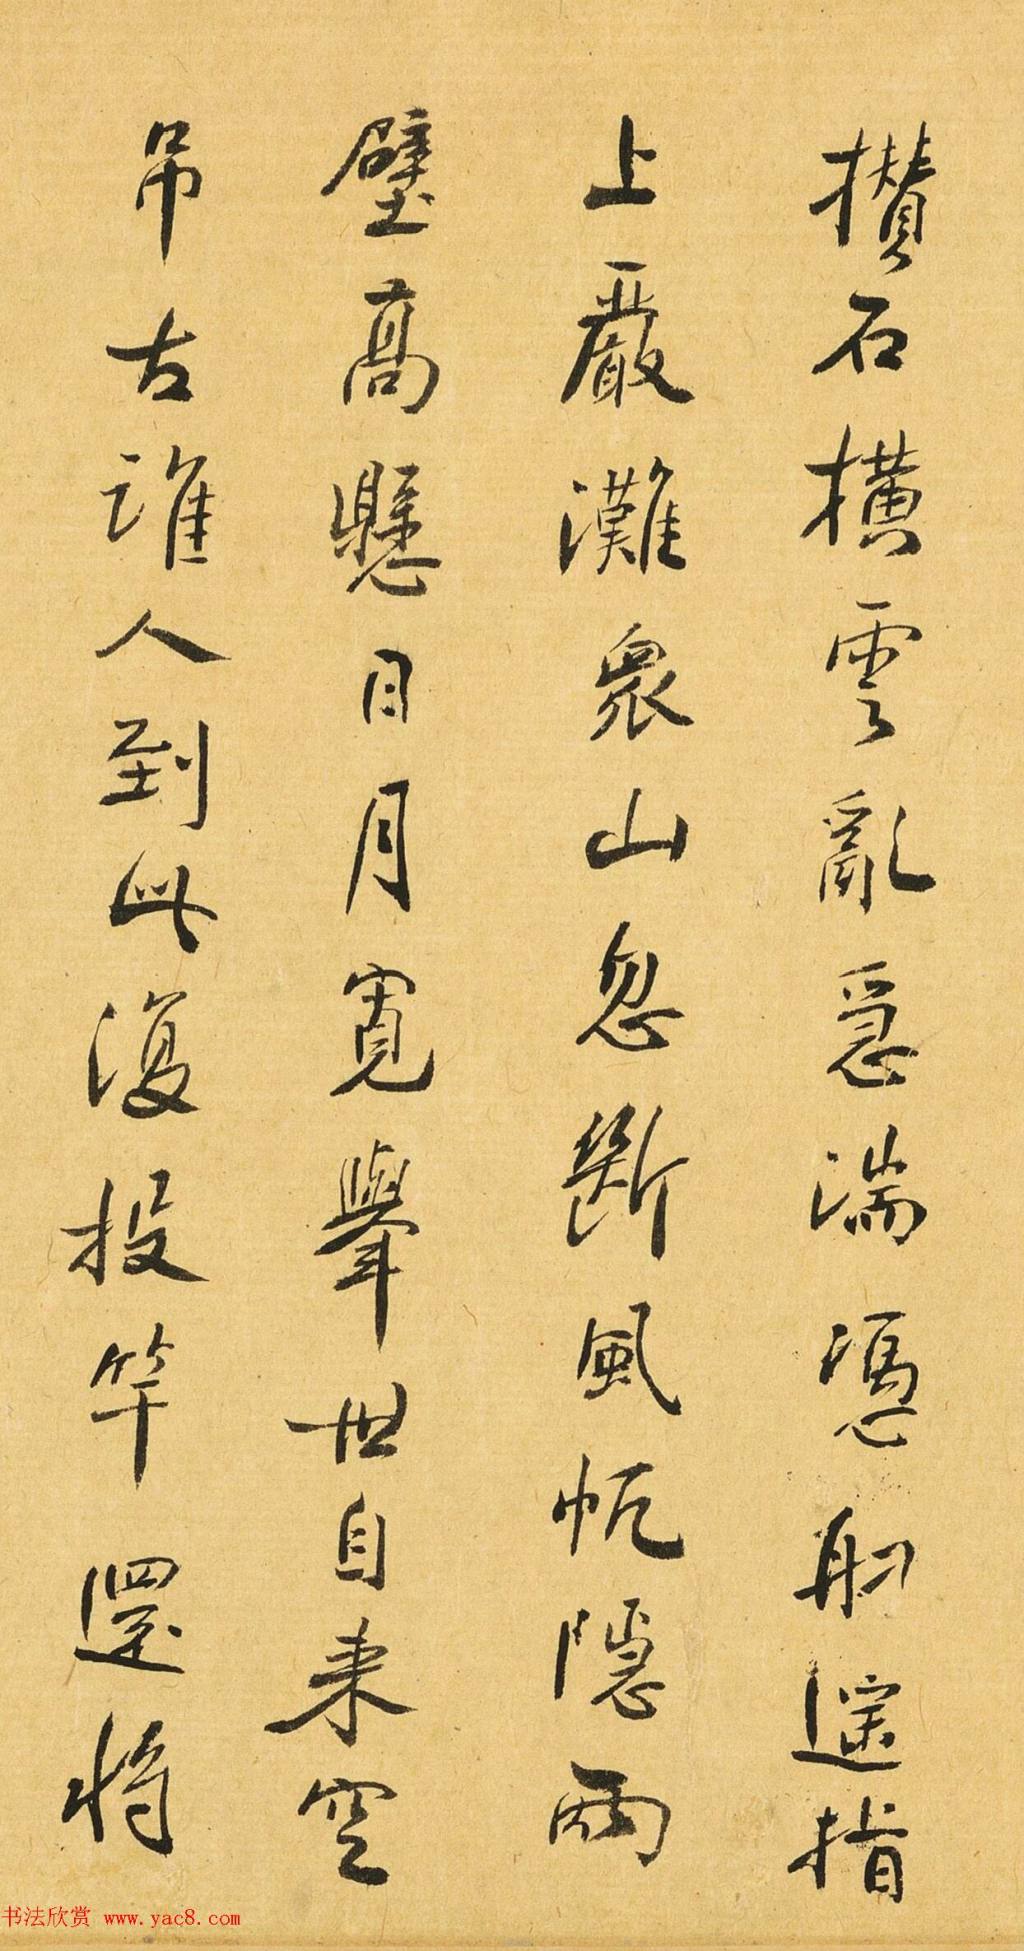 攢石橫雲亂急湍憑舩遥指
上嚴灘衆山忽斷風帆隱兩
壁高懸日月寬舉世自来空
吊古誰人到此復投竿還將
书法欣赏 www.yac8.com